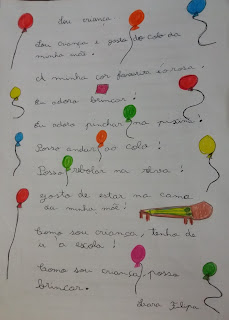 Sou criança
Sou criança e gosto do colo da
minha mãe.
A minha cor favorita é rosa.
Eu adoro brincar!
Eu adoro pinchar na piscina!
Posso andar ao colo!
Posso rebolar na relva!
gosto de estar na cama
da minha mãe!
Como sou criança, tenho de
ir à escola!
Como sou criança, posso
brincar.
Filipa